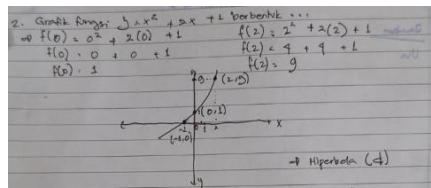 2. Grafik fungsi y = x² + 2x + 1 berbentuk ...
⇒ f(0) = 0² + 2(0) + 1
f(0) = 0 + 0 + 1
f(0) = 1
f(2) = 2² + 2(2) + 1
f(2) = 4 + 4 + 1
f(2) = 9
9 (2,9)
1 (0,1)
-1 0 1 2 x
(-1,0)
→ Hiperbola (d)
y